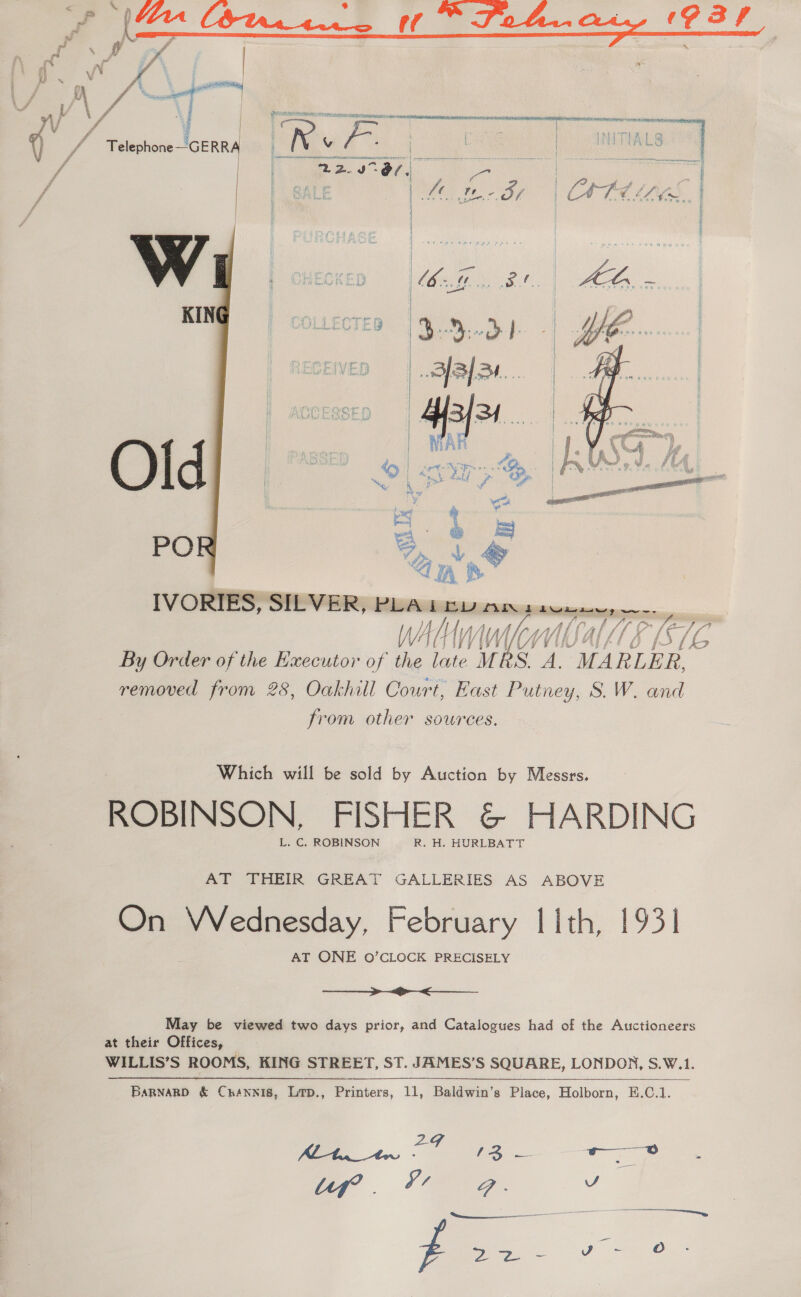 11th February 1931
Telephone—GERRA
R.F. DATE INITIALS
SALE
PURCHASE
CHECKED
COLLECTED 3-3-31
RECEIVED 3/3/31
ACCESSED 4/3/31
PASSED
MAR
1931
Wi
KING
Old
POR
IVORIES, SILVER, PLATED
By Order of the Executor of the late MRS. A. MARLER,
removed from 28, Oakhill Court, East Putney, S.W. and
from other sources.
Which will be sold by Auction by Messrs.
ROBINSON, FISHER & HARDING
L. C. ROBINSON R. H. HURLBATT
AT THEIR GREAT GALLERIES AS ABOVE
On Wednesday, February 11th, 1931
AT ONE O'CLOCK PRECISELY
May be viewed two days prior, and Catalogues had of the Auctioneers
at their Offices,
WILLIS'S ROOMS, KING STREET, ST. JAMES'S SQUARE, LONDON, S.W.1.
BARNARD & CRANNIS, LTD., Printers, 11, Baldwin's Place, Holborn, E.C.1.
29 13 –
£ 22 - - 0 -